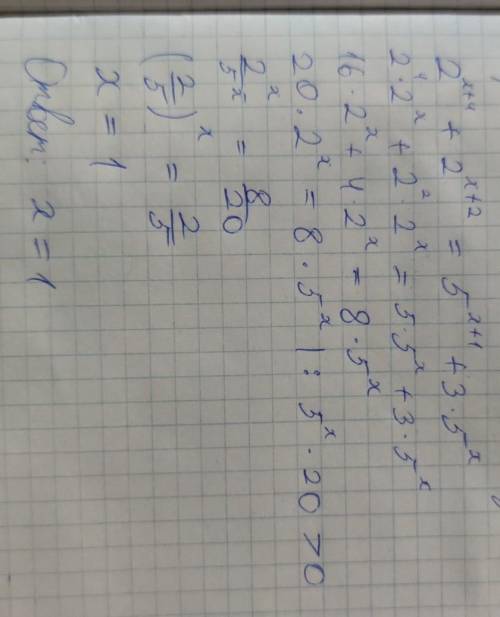 2^{x+4} + 2^{x+2} = 5^{x+1} + 3·5^x
2^4·2^x + 2^2·2^x = 5·5^x + 3·5^x
16·2^x + 4·2^x = 8·5^x
20·2^x = 8·5^x | : 5^x·20 > 0
2^x/5^x = 8/20
(2/5)^x = 2/5
x = 1
Ответ: x = 1